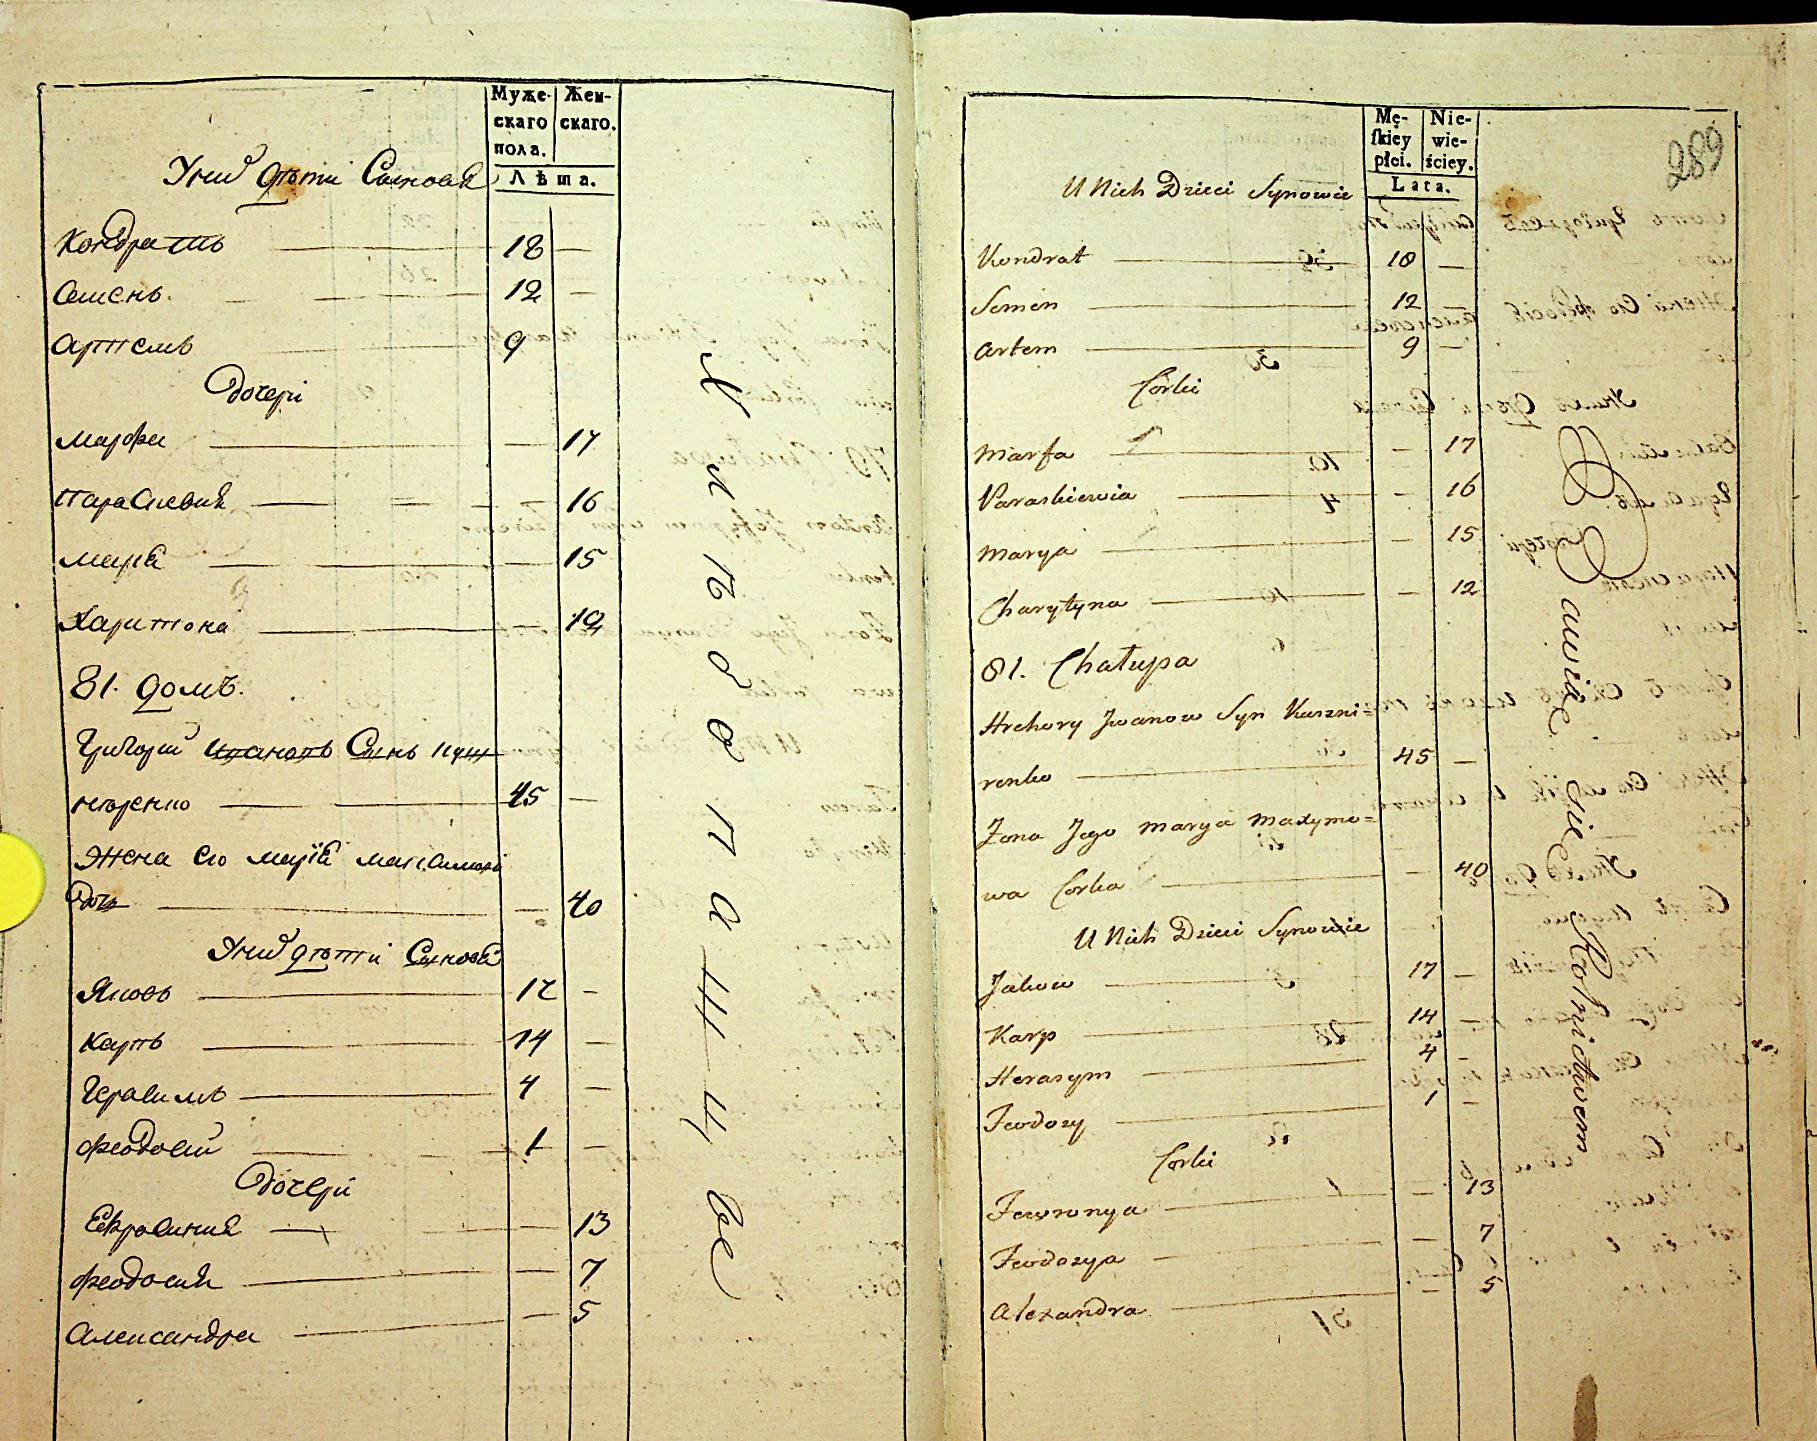 Муже-
скаго
пола.
Жен-
скаго.
Лѣта.
У них дѣти Сыновя
Кондратъ — 18 —
Семенъ — 12 —
Артемъ — 9
Дочери
Марфа — — 17
Параскевия — — 16
Мария — — 15
Харитона — — 12
81. домъ.
Григорий Ивановъ Сынъ Куш
ниренко — 45 —
Жена его Мария Максимова
Дочь — — 40
У них дѣти Сыновя
Яковъ — 17 —
Карпъ — 14 —
Герасимъ — 4 —
Феодосий — 1 —
Дочери
Ефросиния — — 13
Феодосия — — 7
Александра — — 5
Хлѣбопажцы
289
Mę-
skiey
płci.
Nie-
wie-
ściey.
Lata.
U Nich Dzieci Synowie
Kondrat — 18 —
Semen — 12 —
Artem — 9 —
Corki
Marfa — — 17
Paraskiewia — — 16
Marya — — 15
Charytyna — — 12
81. Chałupa
Hrehory Jwanow Syn Kuszni=
renko — 45 —
Żona Jego Marya Maxymo=
wa Corka — — 40
U Nich Dzieci Synowie
Jakow — 17 —
Karp — 14 —
Herasym — 4 —
Feodozy — 1 —
Corki
Fewronya — — 13
Feodozya — — 7
Alexandra — — 5
Bawiąc się Rolnictwem